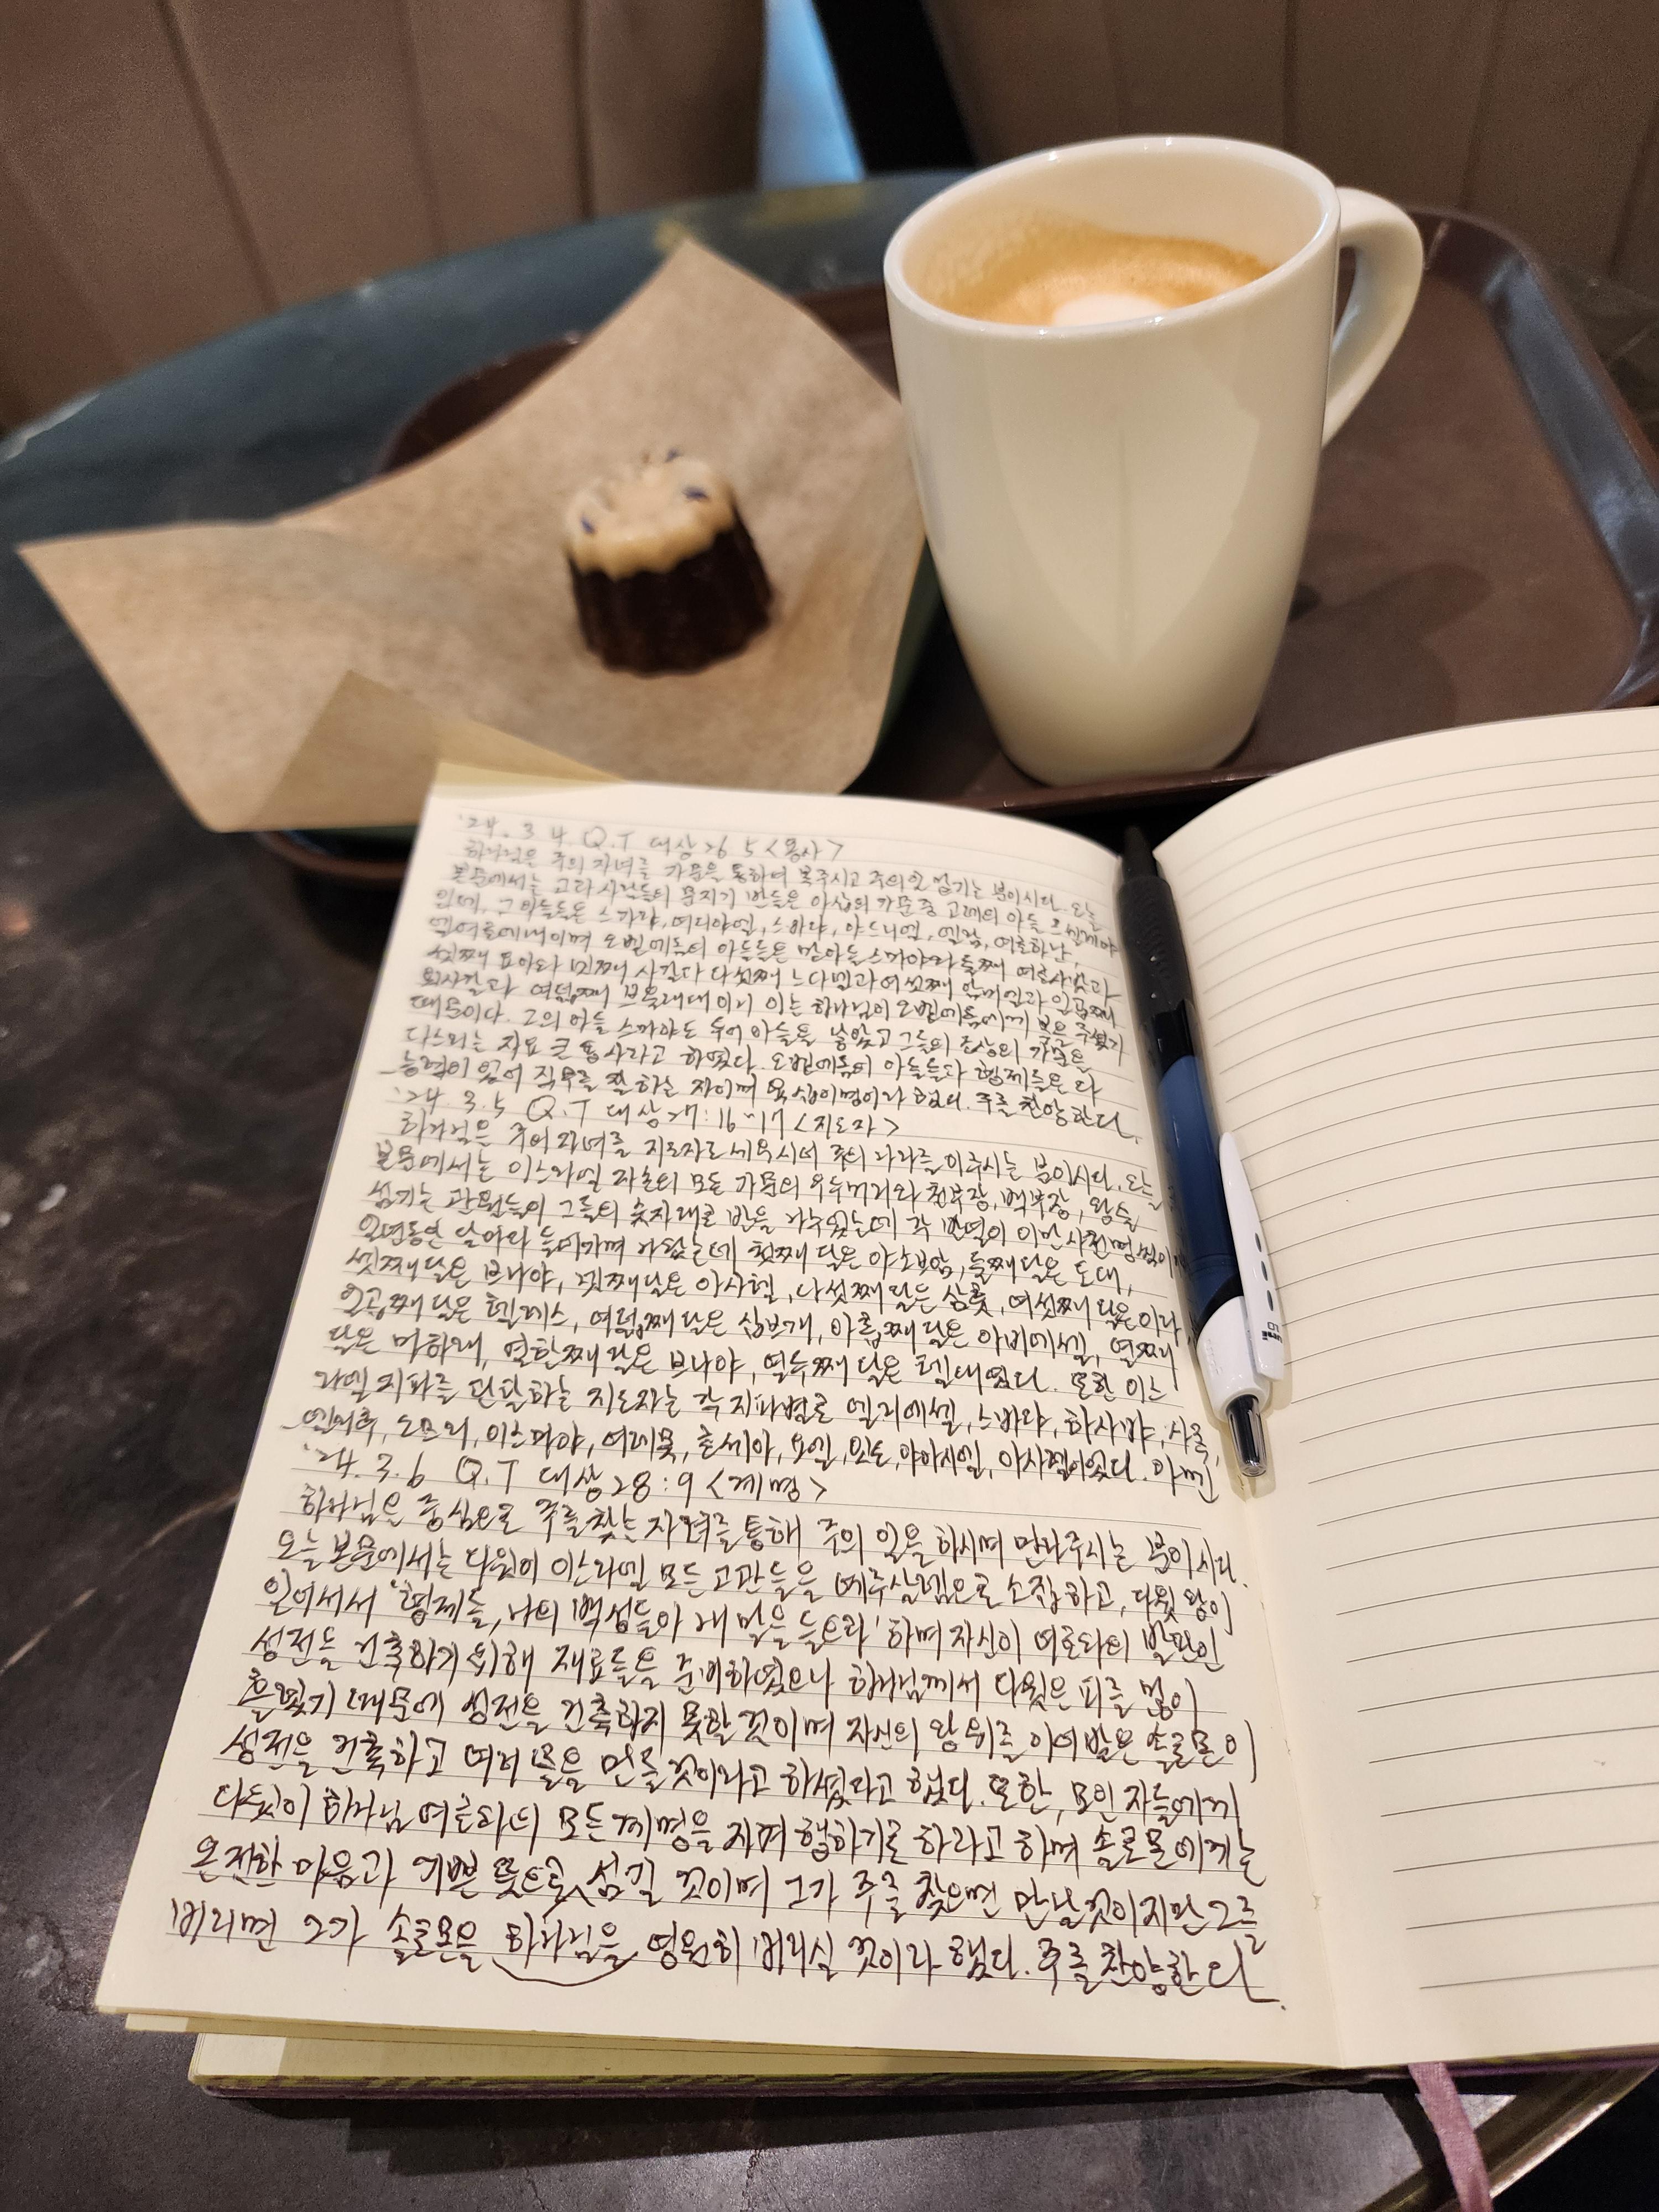 '24. 3. 4. Q.T 대상 26:5 <용사>
하나님은 주의 자녀를 가문을 통하여 복주시고 주의일 맡기는 분이시다. 오늘
본문에서는 고라 사람들의 문지기 반들은 아삽의 가문 중 고레의 아들
인데, 그 아들들은 스가랴, 여디야엘, 스바댜, 야드니엘, 엘람, 여호하난,
엘여호에내이며 오벧에돔의 아들들은 맏아들 스마야와 둘째 여호사밧과
셋째 요아와 넷째 사갈과 다섯째 느다넬과 여섯째 암미엘과 일곱째
잇사갈과 여덟째 브울래대이니 이는 하나님이 오벧에돔에게 복을 주셨기
때문이다. 그의 아들 스마야도 두어 아들을 낳았고 그들의 조상의 가문을
다스리는 자요 큰 용사라고 하였다. 오벧에돔의 아들들과 형제들은 다
능력이 있어 직무를 잘 하는 자이며 육십이명이라 했다. 주를 찬양한다.
'24. 3. 5 Q.T 대상 27:16~17 <지도자>
하나님은 주의 자녀를 지도자로 세우시며 주의 나라를 이루시는 분이시다. 오늘
본문에서는 이스라엘 자손의 모든 가문의 우두머리와 천부장, 백부장, 왕을
섬기는 관원들이 그들의 숫자대로 반을 나누었는데 각 반열이 이만 사천명씩이
일년동안 달마다 들어가며 나왔는데 첫째 달은 야소브암, 둘째달은 도대,
셋째달은 브나야, 넷째달은 아사헬, 다섯째 달은 삼훗, 여섯째 달은 이라,
일곱째 달은 헬레스, 여덟째 달은 십브개, 아홉째 달은 아비에셀, 열째
달은 마하래, 열한째 달은 브나야, 열두째 달은 헬대였다. 또한 이스
라엘 지파를 관할하는 지도자는 각 지파별로 엘리에셀, 스바댜, 하사뱌, 사독,
엘리후, 오므리, 이스마야, 여레못, 호세아, 요엘, 잇도, 야아시엘, 아사렐이었다. 아멘
'24. 3. 6 Q.T 대상 28:9 <계명>
하나님은 중심으로 주를 찾는 자녀를 통해 주의 일을 하시며 만나주시는 분이시다.
오늘 본문에서는 다윗이 이스라엘 모든 고관들을 예루살렘으로 소집하고, 다윗왕이
일어서서 '형제들, 나의 백성들아 내 말을 들으라' 하며 자신이 여호와의 발판인
성전을 건축하기 위해 재료들을 준비하였으나 하나님께서 다윗은 피를 많이
흘렸기 때문에 성전을 건축하지 못할 것이며 자신의 왕위를 이어받은 솔로몬이
성전을 건축하고 여러 뜰을 만들 것이라고 하셨다고 했다. 또한, 모인 자들에게
다윗이 하나님 여호와의 모든 계명을 지켜 행하기로 하라고 하며 솔로몬에게는
온전한 마음과 기쁜 뜻으로 섬길 것이며 그가 주를 찾으면 만날것이지만 그를
버리면 그가 솔로몬을 하나님을 영원히 버리실 것이라 했다. 주를 찬양한다.